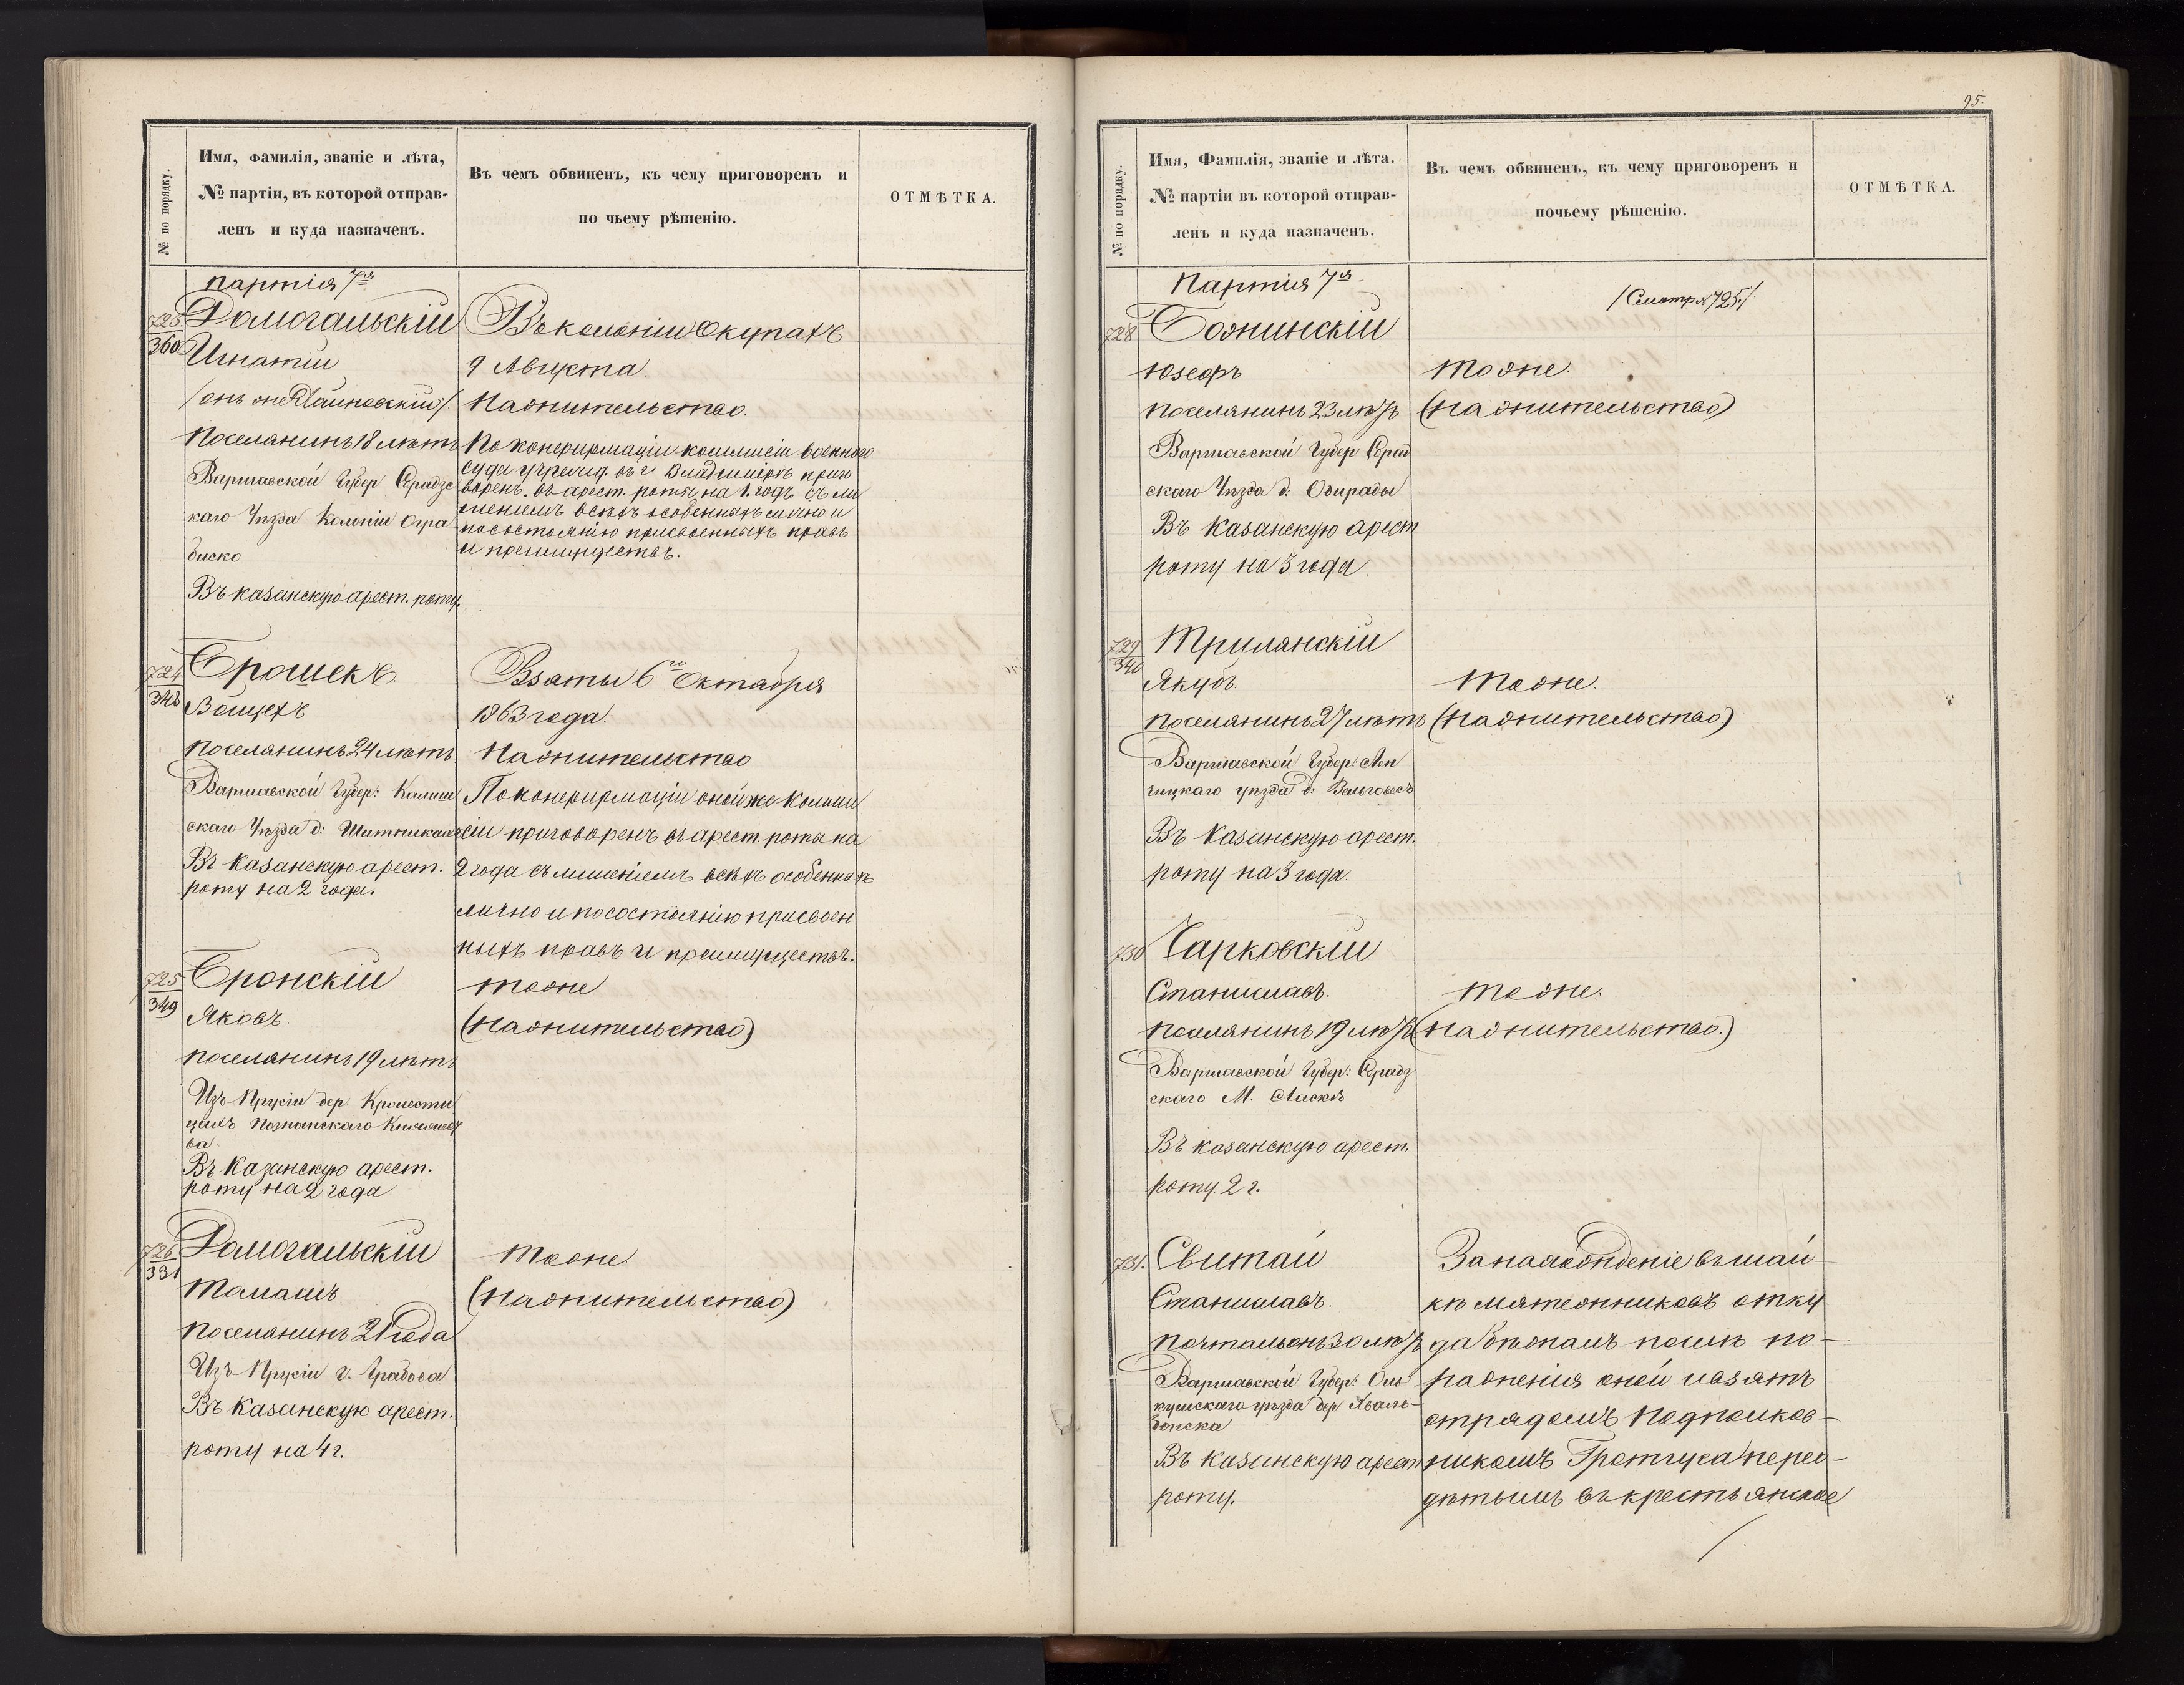 № по порядку.
Имя, фамилія, званіе и лѣта,
№ партіи, въ которой отправ-
ленъ и куда назначенъ.
Въ чемъ обвиненъ, къ чему приговоренъ и
по чьему рѣшенію.
ОТМѢТКА.
партія 7я
723
360
Домогальскій
Игнатій
поселянинъ 18 лѣтъ
Варшавской Губер Серадзс
каго Уѣзда Колоніи Огра
биско
Въ казанскую арест. роту.
Въ колоніи Окупахъ
9 Августа.
На жительство.
По конфирмаціи коммисіи военнаго
суда учрежд. въ г. Владимірѣ приго
воренъ въ арест. роты на 1. годъ съ ли
шеніемъ всѣхъ особенныхъ лично и
по состоянію присвоенныхъ правъ
и преимуществъ.
724
348
Брошекъ
Войцехъ
поселянинъ 24 лѣтъ
Варшавской Губер: Калиш
скаго Уѣзда д:
Въ Казанскую арест.
роту на 2 года.
Взяты 6го Октября
1863 года.
На жительство
По конфирмаціи оной же Комми
сіи приговоренъ въ арест. роты на
2 года съ лишеніемъ всѣхъ особенныхъ
лично и по состоянію присвоен
ныхъ правъ и преимуществъ.
725
349
Бронскій
Яковъ
поселянинъ 19 лѣтъ
Изъ Прусіи дер.
цахъ Познанскаго Княжест
ва
Въ Казанскую арест.
роту на 2 года
тоже
(на жительство)
726
331
Домогальскій
Томашъ
поселянинъ 21 года
Изъ Прусіи г. Грабова
Въ Казанскую арест.
роту на 4 г.
Тоже
(на жительство)
95.
№ по порядку.
Имя, Фамилія, званіе и лѣта.
№ партіи въ которой отправ-
ленъ и куда назначенъ.
Въ чемъ обвиненъ, къ чему приговоренъ и
почьему рѣшенію.
ОТМѢТКА.
Партія 7я
/Смотр № 725./
728
Божинскій
Юзефъ
поселянинъ 23 лѣтъ
Варшавской Губер Серад
скаго Уѣзда д:
Въ Казанскую арест
роту на 3 года
тоже.
(на жительство)
729
340
Трилянскій
Якубъ
поселянинъ 27 лѣтъ
Варшавской Губер: Лен
чицкаго уѣзда д:
Въ Казанскую арест.
роту на 3 года.
тоже.
(на жительство)
730
Чарковскій
Станиславъ.
поселянинъ 19 лѣтъ
Варшавской Губер: Серадз
скаго М. Ласкъ
Въ казанскую арест.
роту 2 г.
тоже.
(на жительство.)
731.
Свитай
Станиславъ.
почтальонъ 30 лѣтъ
Варшавской Губер: Оль
кушскаго уѣзда дер
Въ казанскую арест
роту.
За нахожденіе въ шай-
кѣ мятежниковъ отку
да бѣжалъ послѣ по-
раженія оной и взятъ
отрядомъ Подполков-
никомъ перео-
дѣтымъ въ крестьянское